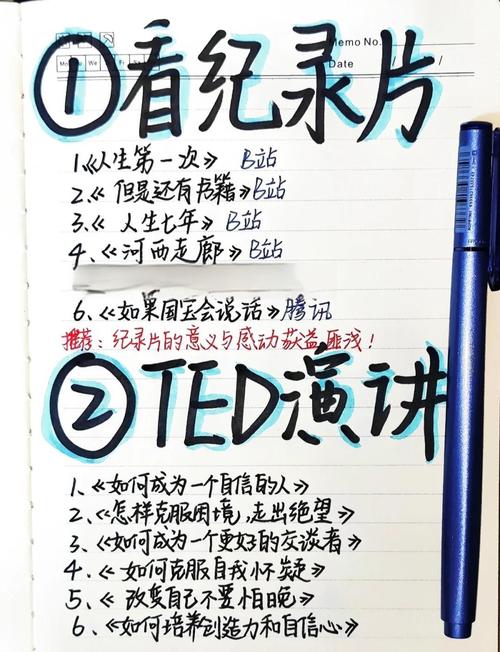 Memo No.
Mo
We
Fr
Date / /
①看纪录片
1.《人生第一次》 B站
2.《但是还有书籍》B站
3.《人生七年》 B站
4.《河西走廊》B站
6.《如果国宝会说话》腾讯
推荐:纪录片的意义与感动获益匪浅!
②TED演讲
1、《如何成为一个自信的人》
2、《怎样克服困境,走出绝望》
3、《如何成为一个更好的交谈者》
4、《如何克服自我怀疑》
5、《改变自己不要怕晚》
6、《如何培养创造力和自信心》